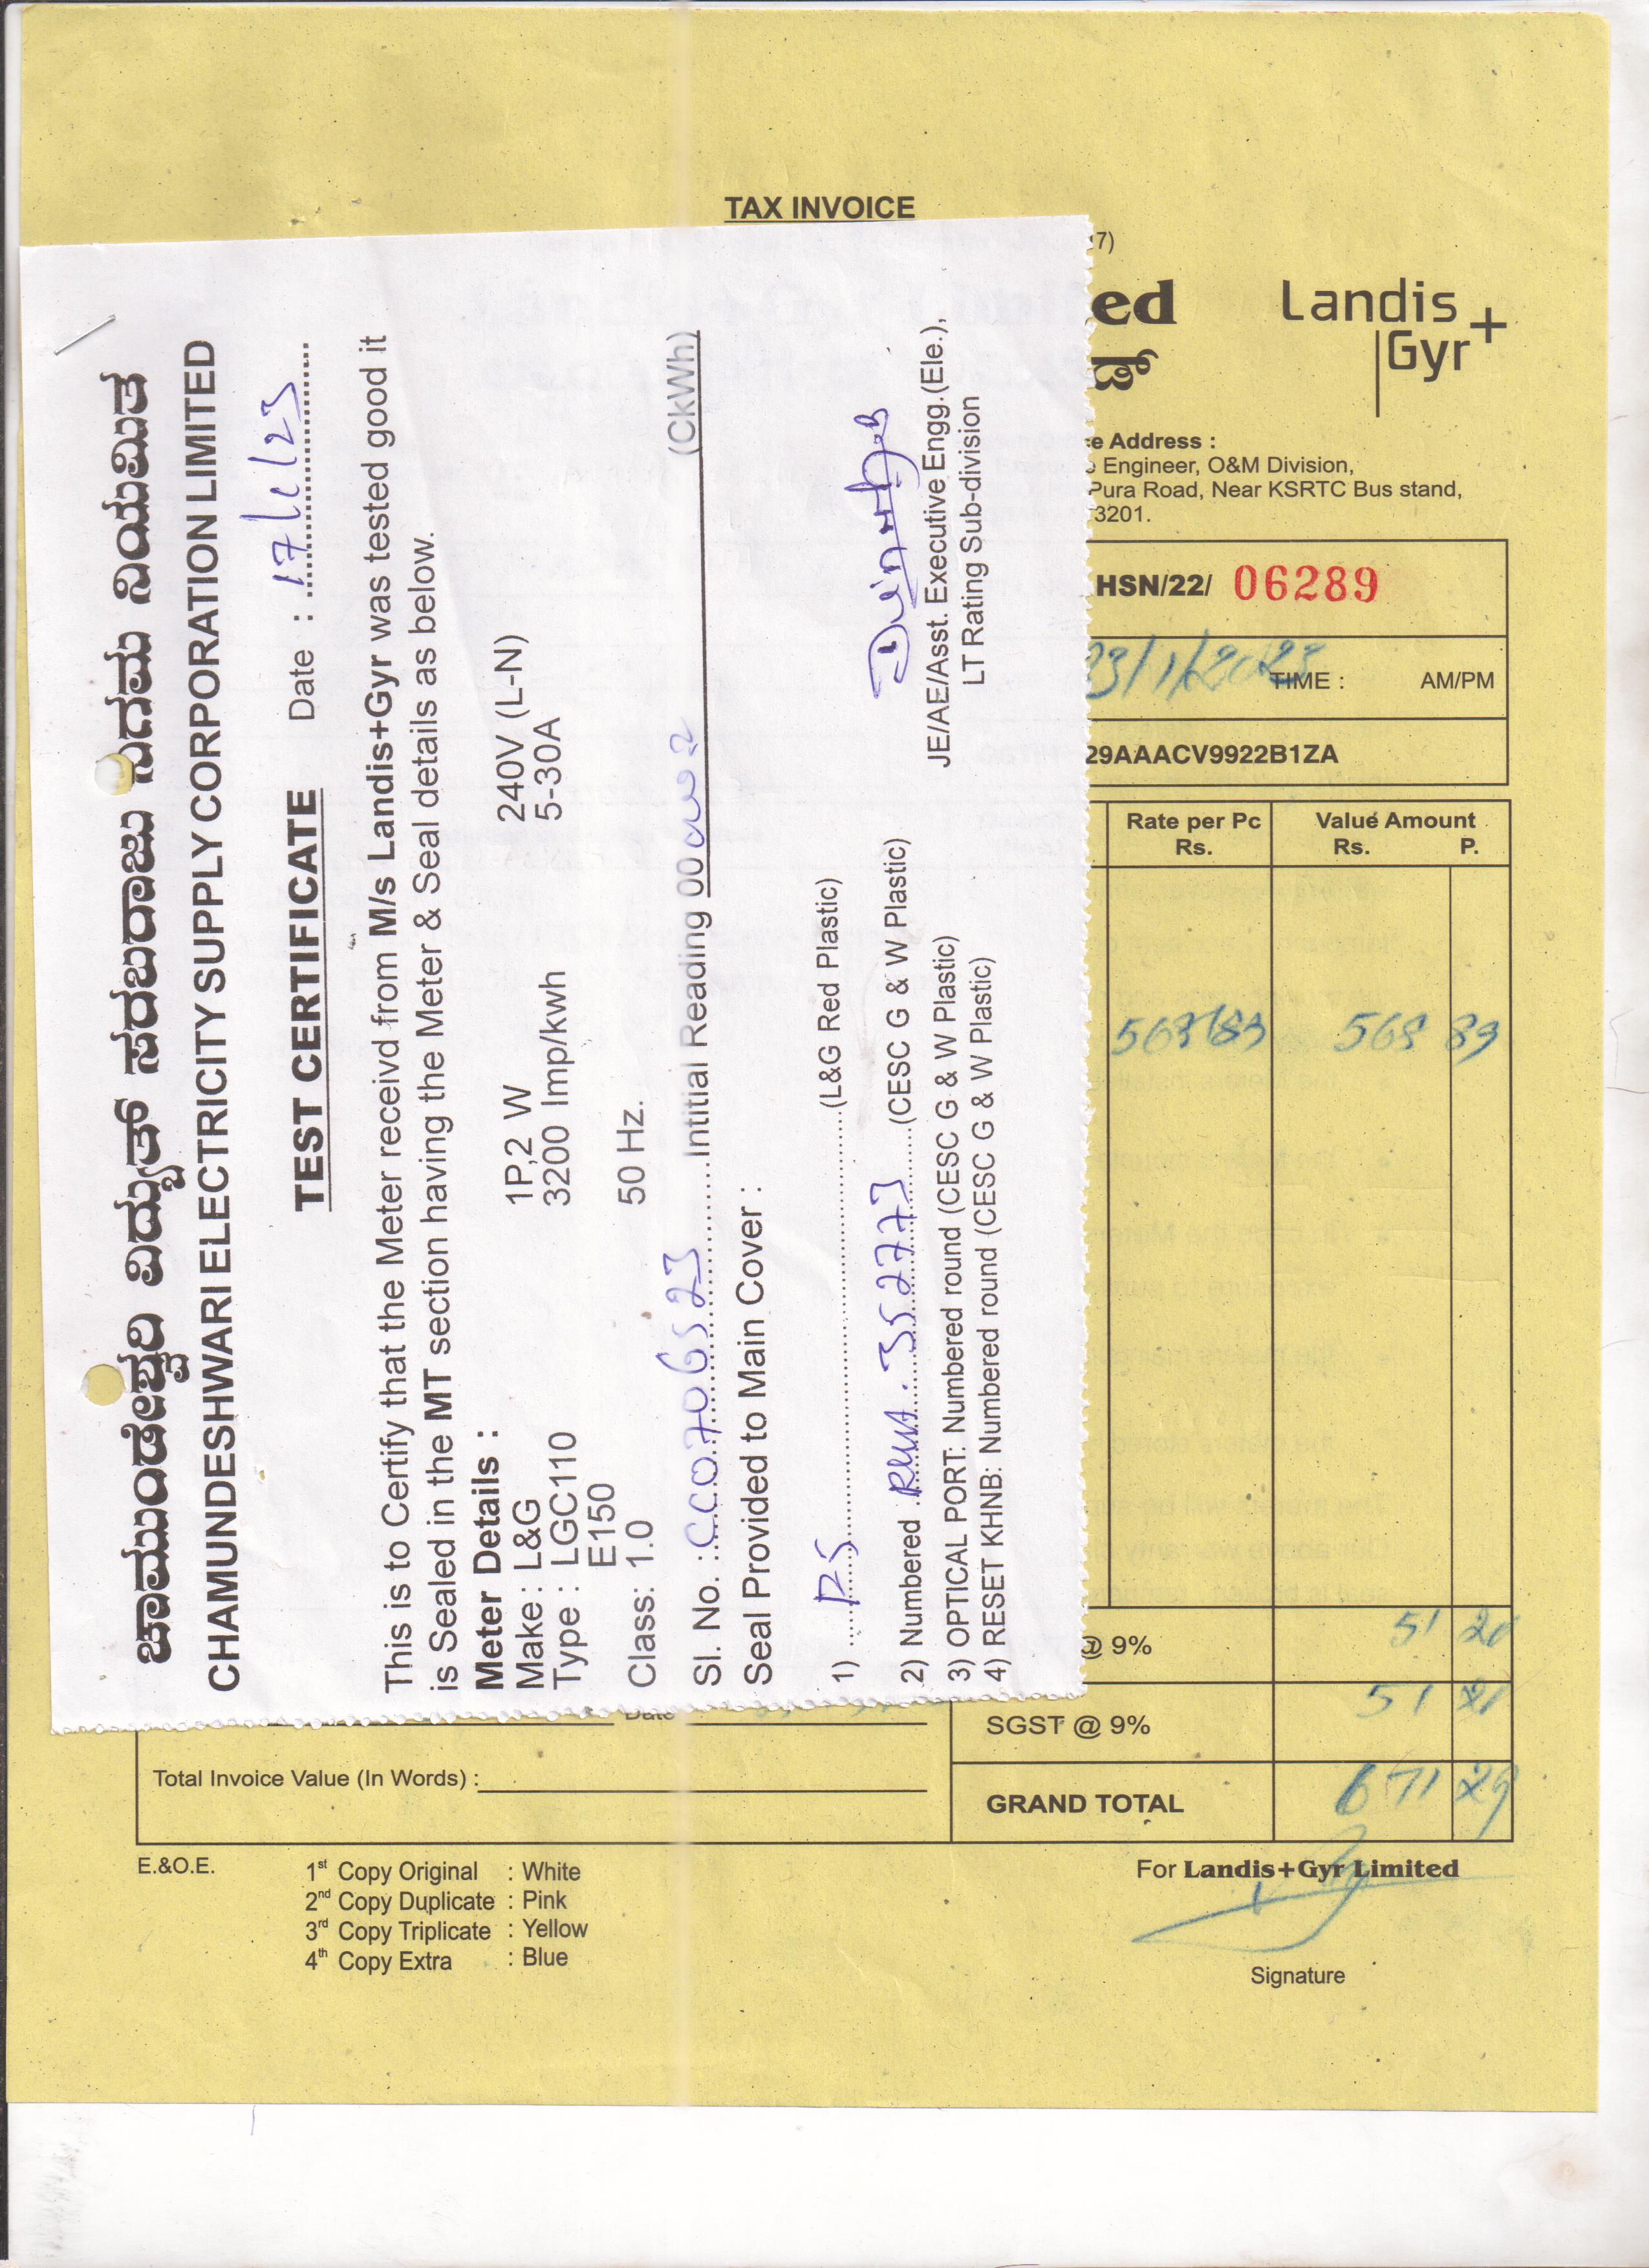 TAX INVOICE
7)
ed
ಡ್
Landis
Gyr+
e Address :
Engineer, O&M Division,
Pura Road, Near KSRTC Bus stand,
3201.
HSN/22/ 06289
23/1/2023 TIME : AM/PM
29AAACV9922B1ZA
Rate per Pc Rs.
Value Amount Rs. P.
568/89 568 89
@ 9% 51 20
SGST @ 9% 51 20
GRAND TOTAL 671 29
Date
Total Invoice Value (In Words) :
E.&O.E.
1st Copy Original : White
2nd Copy Duplicate : Pink
3rd Copy Triplicate : Yellow
4th Copy Extra : Blue
For Landis+Gyr Limited
Signature
ಚಾಮುಂಡೇಶ್ವರಿ ವಿದ್ಯುತ್ ಸರಬರಾಜು ನಿಗಮ ನಿಯಮಿತ
CHAMUNDESHWARI ELECTRICITY SUPPLY CORPORATION LIMITED
TEST CERTIFICATE Date : 17/1/23
This is to Certify that the Meter receivd from M/s Landis+Gyr was tested good it
is Sealed in the MT section having the Meter & Seal details as below.
Meter Details :
Make : L&G 1P,2 W 240V (L-N)
Type : LGC110 3200 Imp/kwh 5-30A
E150
Class: 1.0 50 Hz.
Sl. No. : CC0706523 Intitial Reading 00 (CkWh)
Seal Provided to Main Cover :
1) (L&G Red Plastic)
2) Numbered 352777 (CESC G & W Plastic)
3) OPTICAL PORT: Numbered round (CESC G & W Plastic)
4) RESET KHNB: Numbered round (CESC G & W Plastic)
JE/AE/Asst. Executive Engg.(Ele.),
LT Rating Sub-division